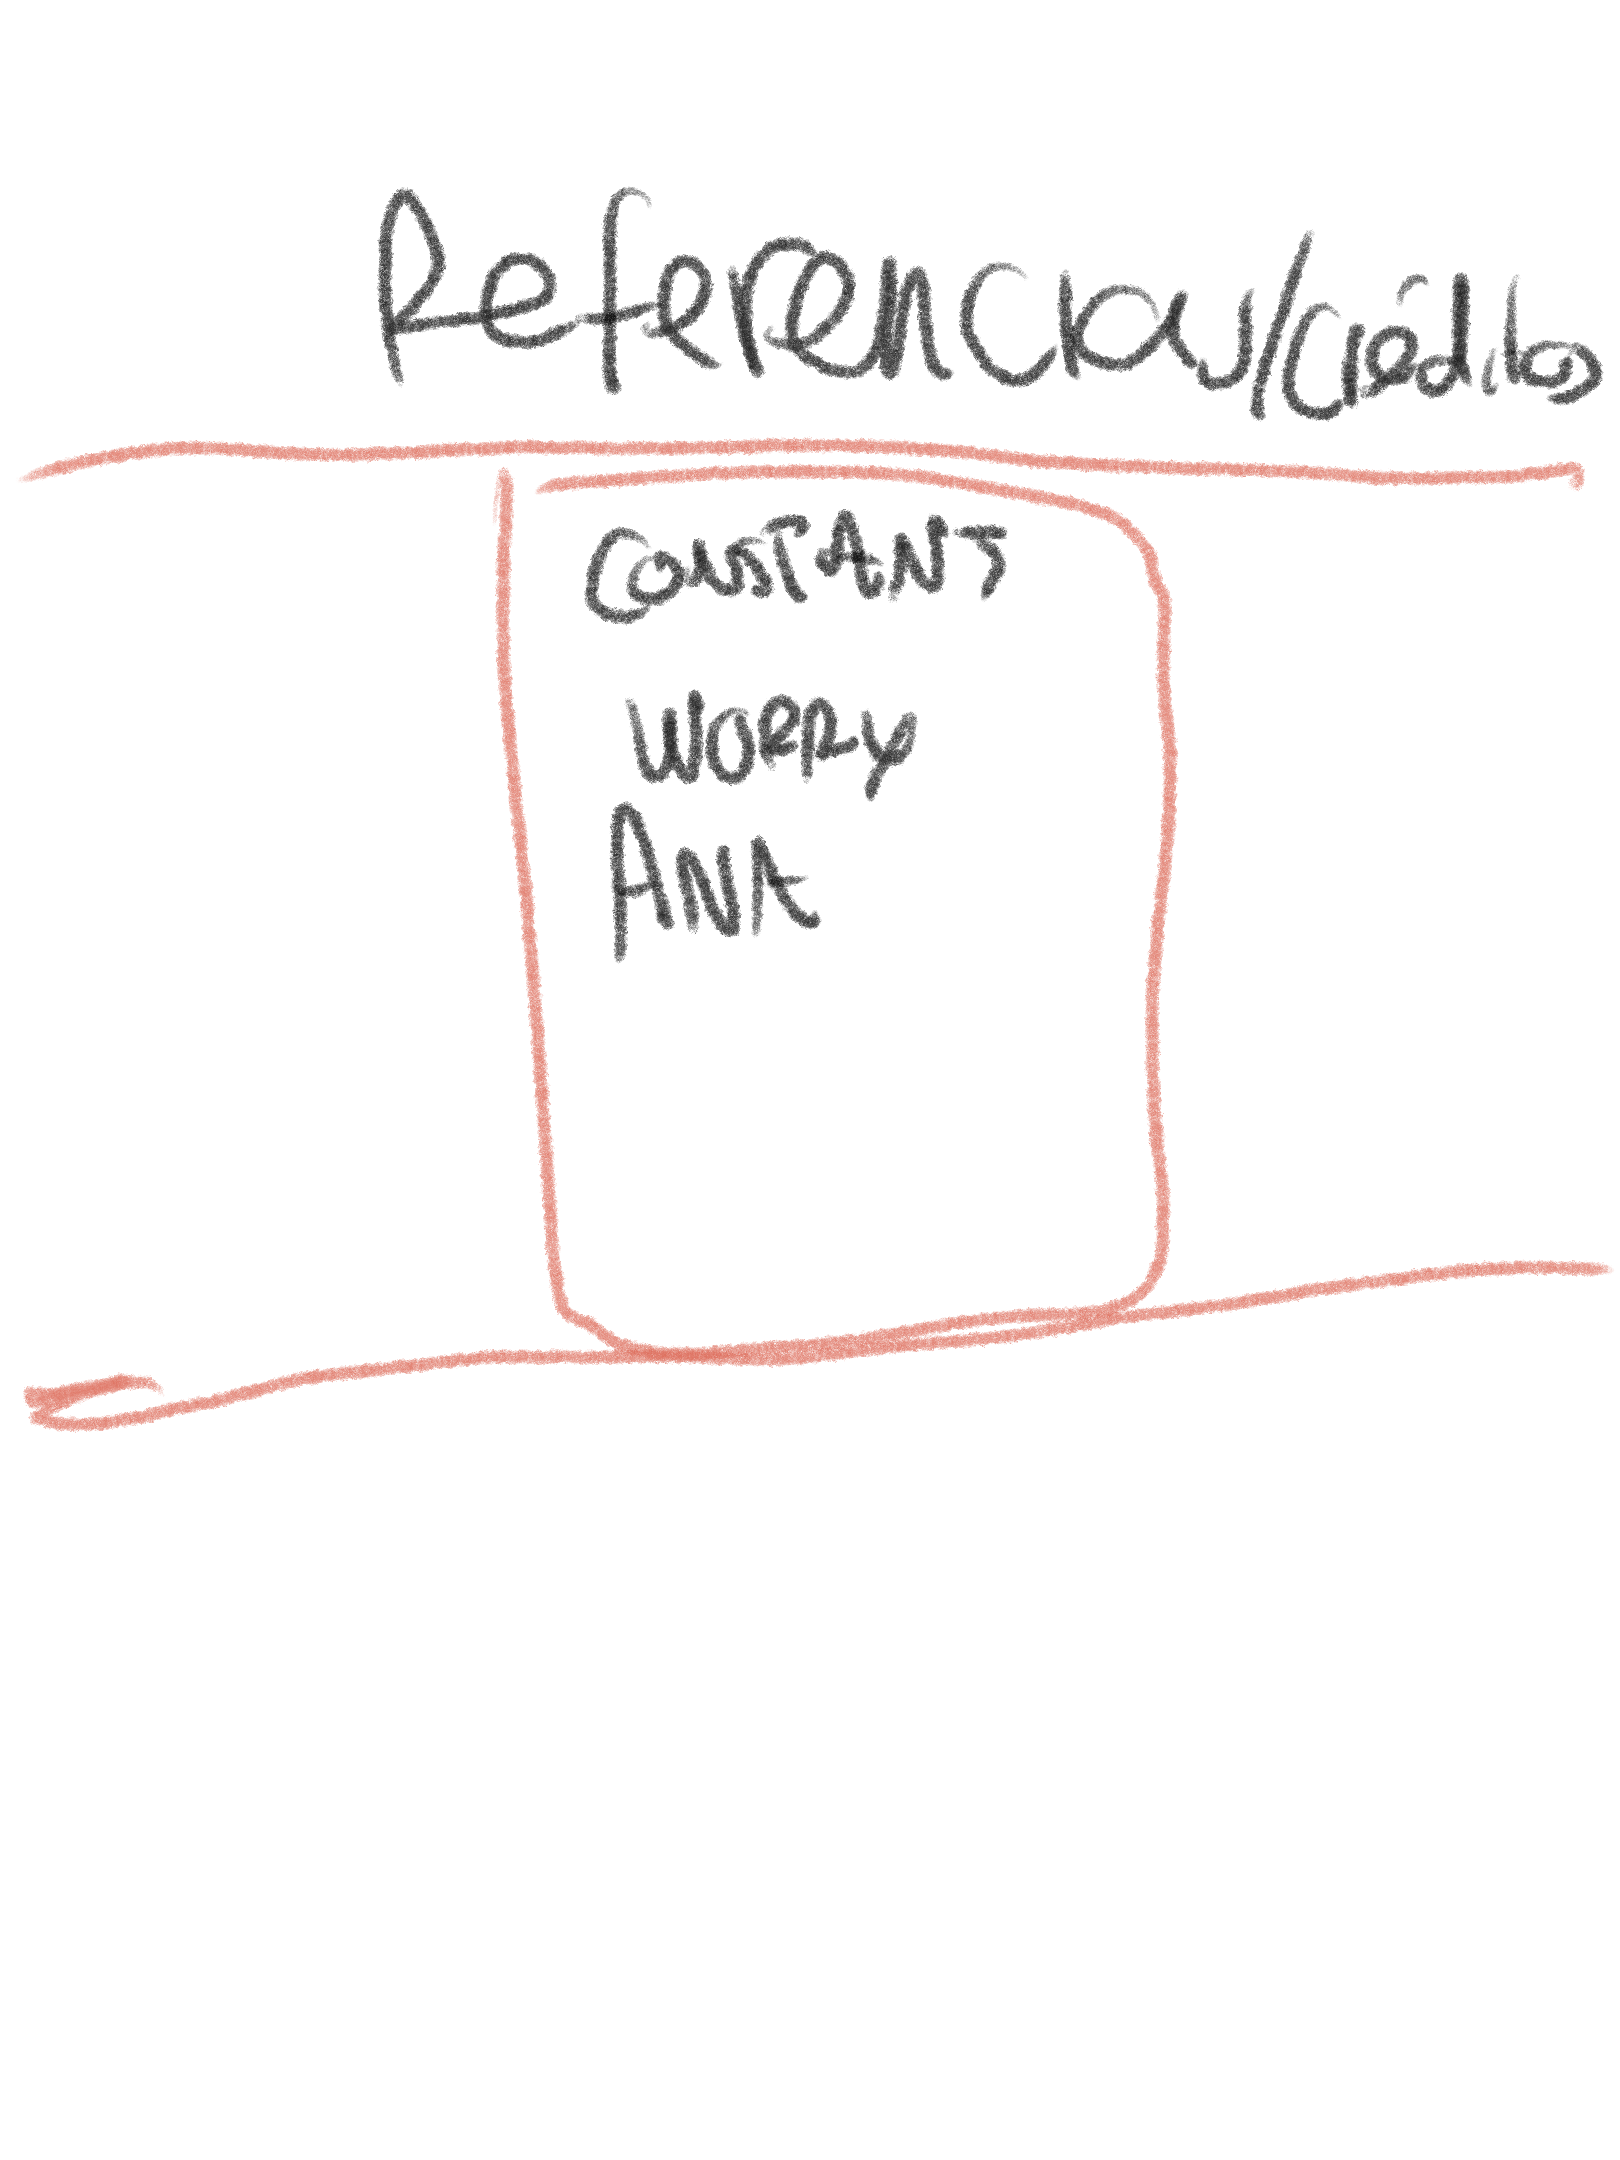 Referencias/créditos
CONSTANT
WORRY
ANA